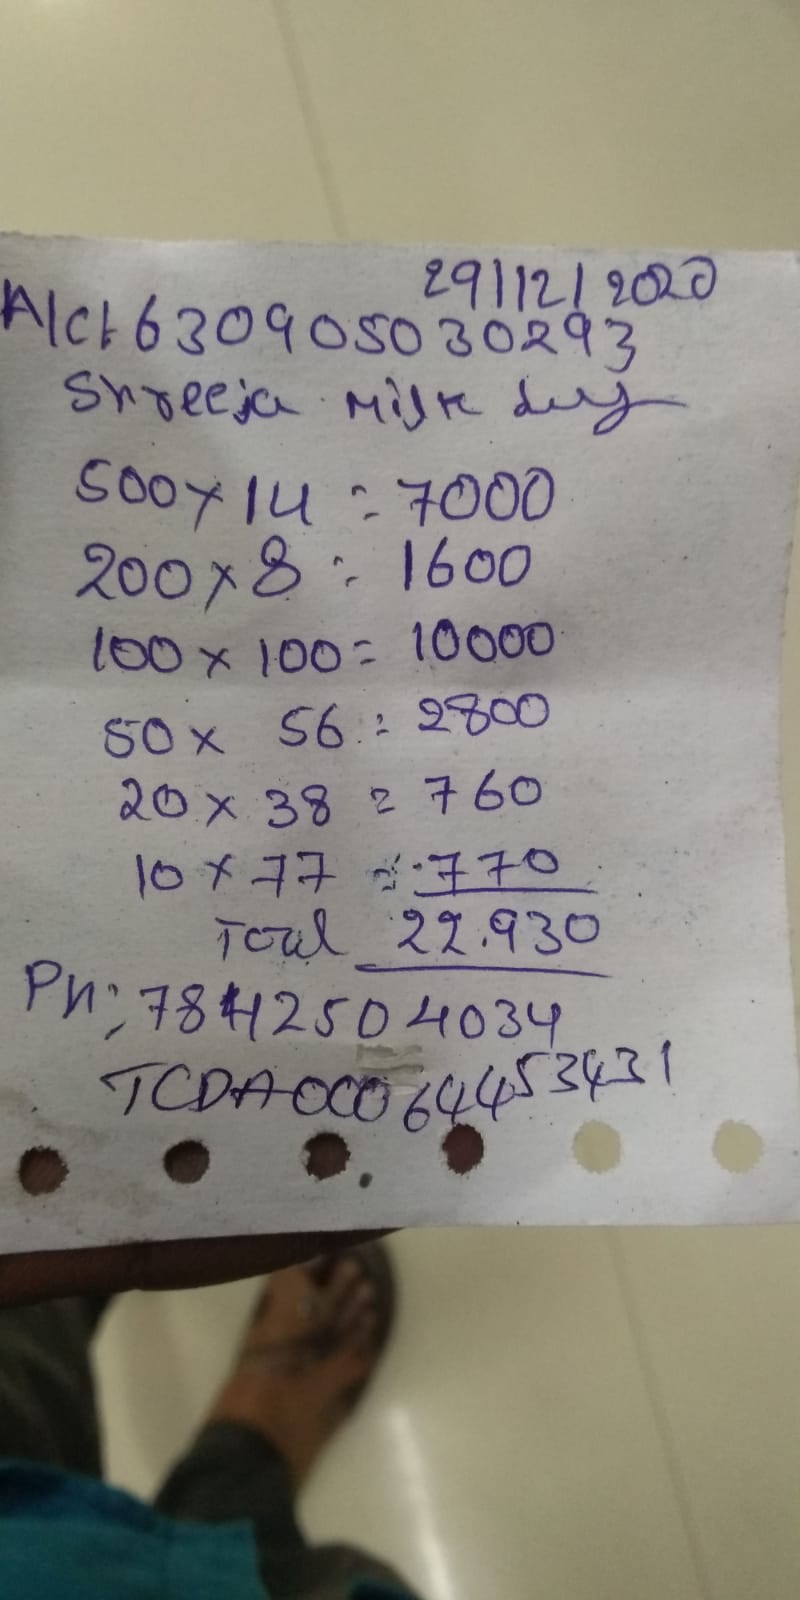 29/12/2020
A/ct 630905030293
Shreeja Milk
500 x 14 = 7000
200 x 8 = 1600
100 x 100 = 10000
50 x 56 = 2800
20 x 38 = 760
10 x 77 = 770
Total 22.930
Ph; 7842504034
TCDA00064453431